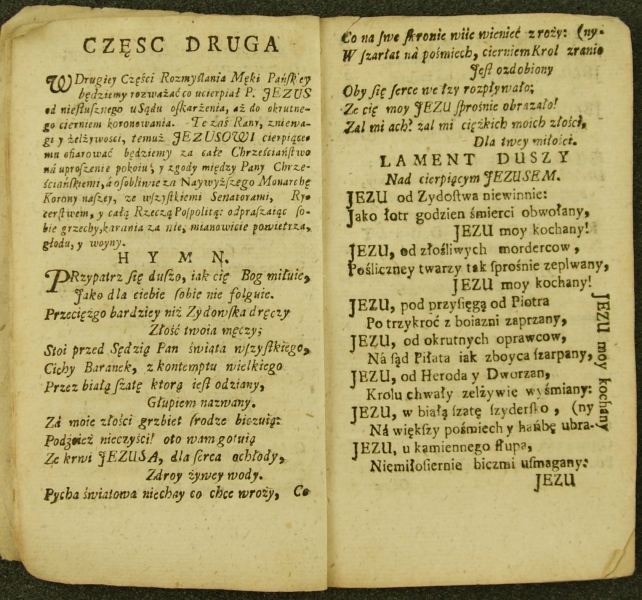 CZĘSC DRUGA
W Drugiey Częśći Rozmyślania Męki Pańskʼey
będźiemy rozważać co ucierpiał P. JEZUS
od niesłusznego u Sądu oskarżenia, aż do okrutne-
go cierniem koronowania. Te zaś Rany, zniewa-
gi y żelżywosci, temuż JEZUSOWI cierpiące
mu ofiarować będziemy za całe Chrześciaństwo
ná uproszenie pokoiu, y zgody między Pany Chrze-
ściańskiemi, á osobliwie za Naywyższego Monarchę
Korony naszey, ze wszystkiemi Senatorami, Ry-
cerstwem, y całą Rzeczą Pospolitą: odpraszaiąc so-
bie grzechy, karania za nie, mianowicie powietrza,
głodu, y woyny.
HYMN.
PRzypatrz się duszo, iak cię Bog miłuie,
Jako dla ciebie sobie nie folguie.
Przecięzgo bardziey niż Zydowska dręczy
Złość twoia męczy;
Stoi przed Sędzią Pan świáta wszystkiego,
Cichy Baranek, z kontemptu wielkiego
Przez białą szatę ktorą iest odziany,
Głupiem nazwany.
Zá moie złości grzbiet srodze biczuią:
Podźćież nieczyści! oto wam gotuią
Ze krwi JEZUSA, dla serca ochłody,
Zdroy żywey wody.
Pycha światowa niechay co chce wroży, Co
Co na swe skronie wiie wienieć z roży: (ny-
W szarłat ná pośmiech, cierniem Krol zranio
Jest ozdobiony
Oby się serce we łzy rozpływało;
Ze cię moy JEZU sprośnie obrazało!
Zal mi ach! zal mi ciężkich moich złości,
Dla twey miłości.
LAMENT DUSZY
Nad cierpiącym JEZUSEM.
JEZU od Zydostwa niewinnie:
Jako łotr godzien śmierci obwołany,
JEZU moy kochany!
JEZU, od złośliwych mordercow,
Pośliczney twarzy tak sprośnie zeplwany,
JEZU moy kochany!
JEZU, pod przysięgą od Piotra
Po trzykroć z boiazni zaprzany,
JEZU, od okrutnych oprawcow,
Ná sąd Piłata iak zboyca szarpany,
JEZU, od Heroda y Dworzan,
Krolu chwały zelżywie wyśmiany:
JEZU, w białą szatę szydersko, (ny
Ná większy pośmiech y hańbę ubra-
JEZU, u kamiennego słupa,
Niemiłosiernie biczmi usmagany:
JEZU moy kochany
JEZU